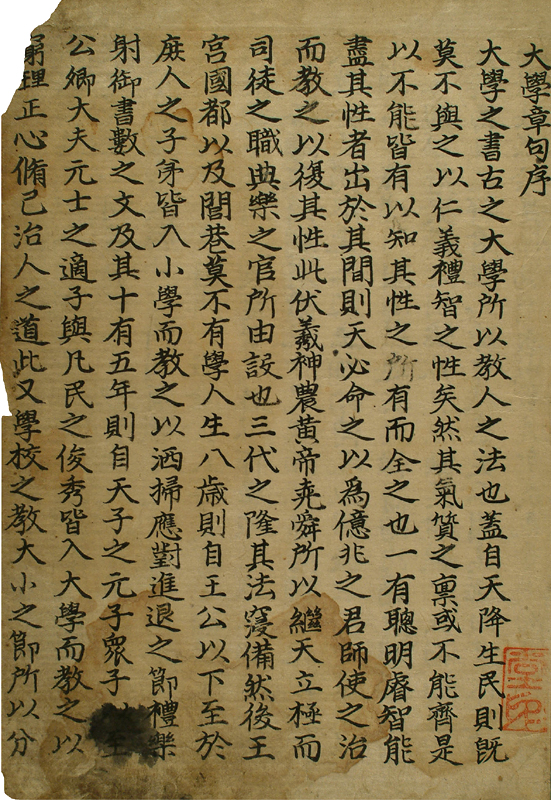 大學章句序
大學之書古之大學所以教人之法也蓋自天降生民則旣
莫不與之以仁義禮智之性矣然其氣質之稟或不能齊是
以不能皆有以知其性之所有而全之也一有聰明睿智能
盡其性者出於其間則天必命之以爲億兆之君師使之治
而教之以復其性此伏羲神農黃帝堯舜所以繼天立極而
司徒之職典樂之官所由設也三代之隆其法寖備然後王
宮國都以及閭巷莫不有學人生八歲則自王公以下至於
庶人之子弟皆入小學而教之以洒掃應對進退之節禮樂
射御書數之文及其十有五年則自天子之元子衆子以至
公卿大夫元士之適子與凡民之俊秀皆入大學而教之以
窮理正心脩己治人之道此又學校之教大小之節所以分